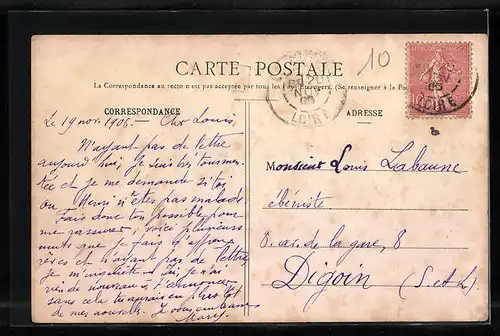 10
CARTE POSTALE
La Correspondance au recto n'est pas acceptée par tous les Pays Etrangers. (Se renseigner à la Poste
CORRESPONDANCE
ADRESSE
LOIRE
LOIRE
Le 19 nov. 1906. Cher Louis,
N'ayant pas de lettre
aujourd'hui, je suis très tourmen-
tée et je me demande si toi
ou Henri n'êtes pas malade
Fais donc ton possible pour
me rassurer; voici plusieurs
nuits que je fais d'affreux
rêves et n'ayant pas de lettre,
je m'inquiète. Ici, je n'ai
rien de nouveau à t'annoncer
sans cela tu aurais eu plus tôt
de mes nouvelles. Je vous embrasse
Mary
Monsieur Louis Labaune
ébéniste
8. av. de la gare, 8
Digoin (S.-et-L.)